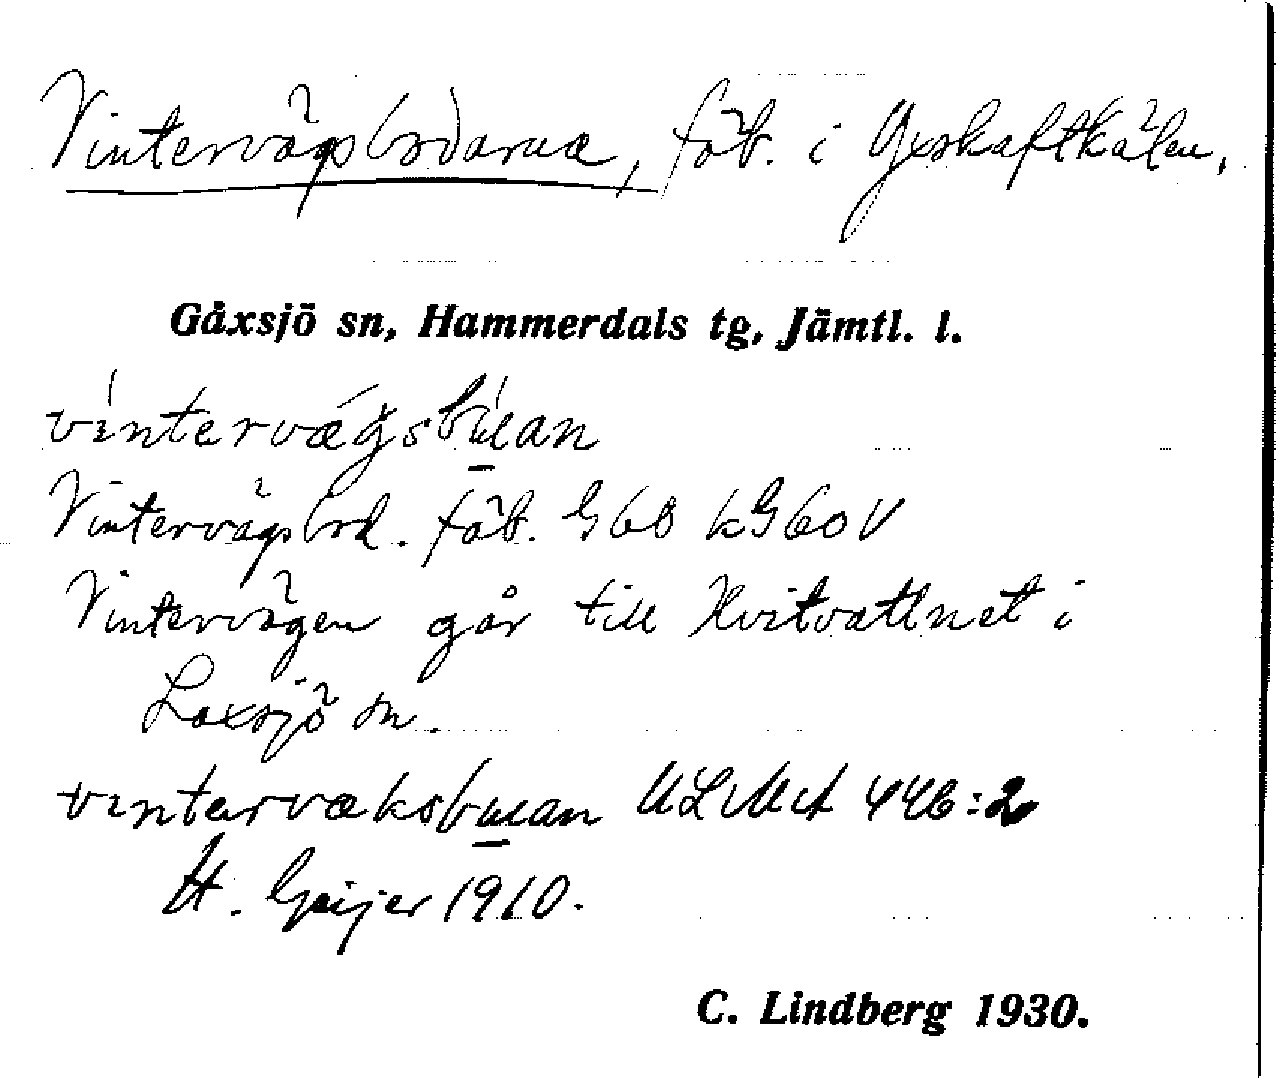 Vintervägsbodarna, fäb. i Yxskaftkälen.
Gåxsjö sn, Hammerdals tg, Jämtl. l.
vintervægsbuan
Vintervägsbod. fäb. G60 kG60V
Vintervägen går till Hvitvattnet i
Laxsjö sn.
vintervæksbuan ULMA 446:2
H. Geijer 1910.
C. Lindberg 1930.